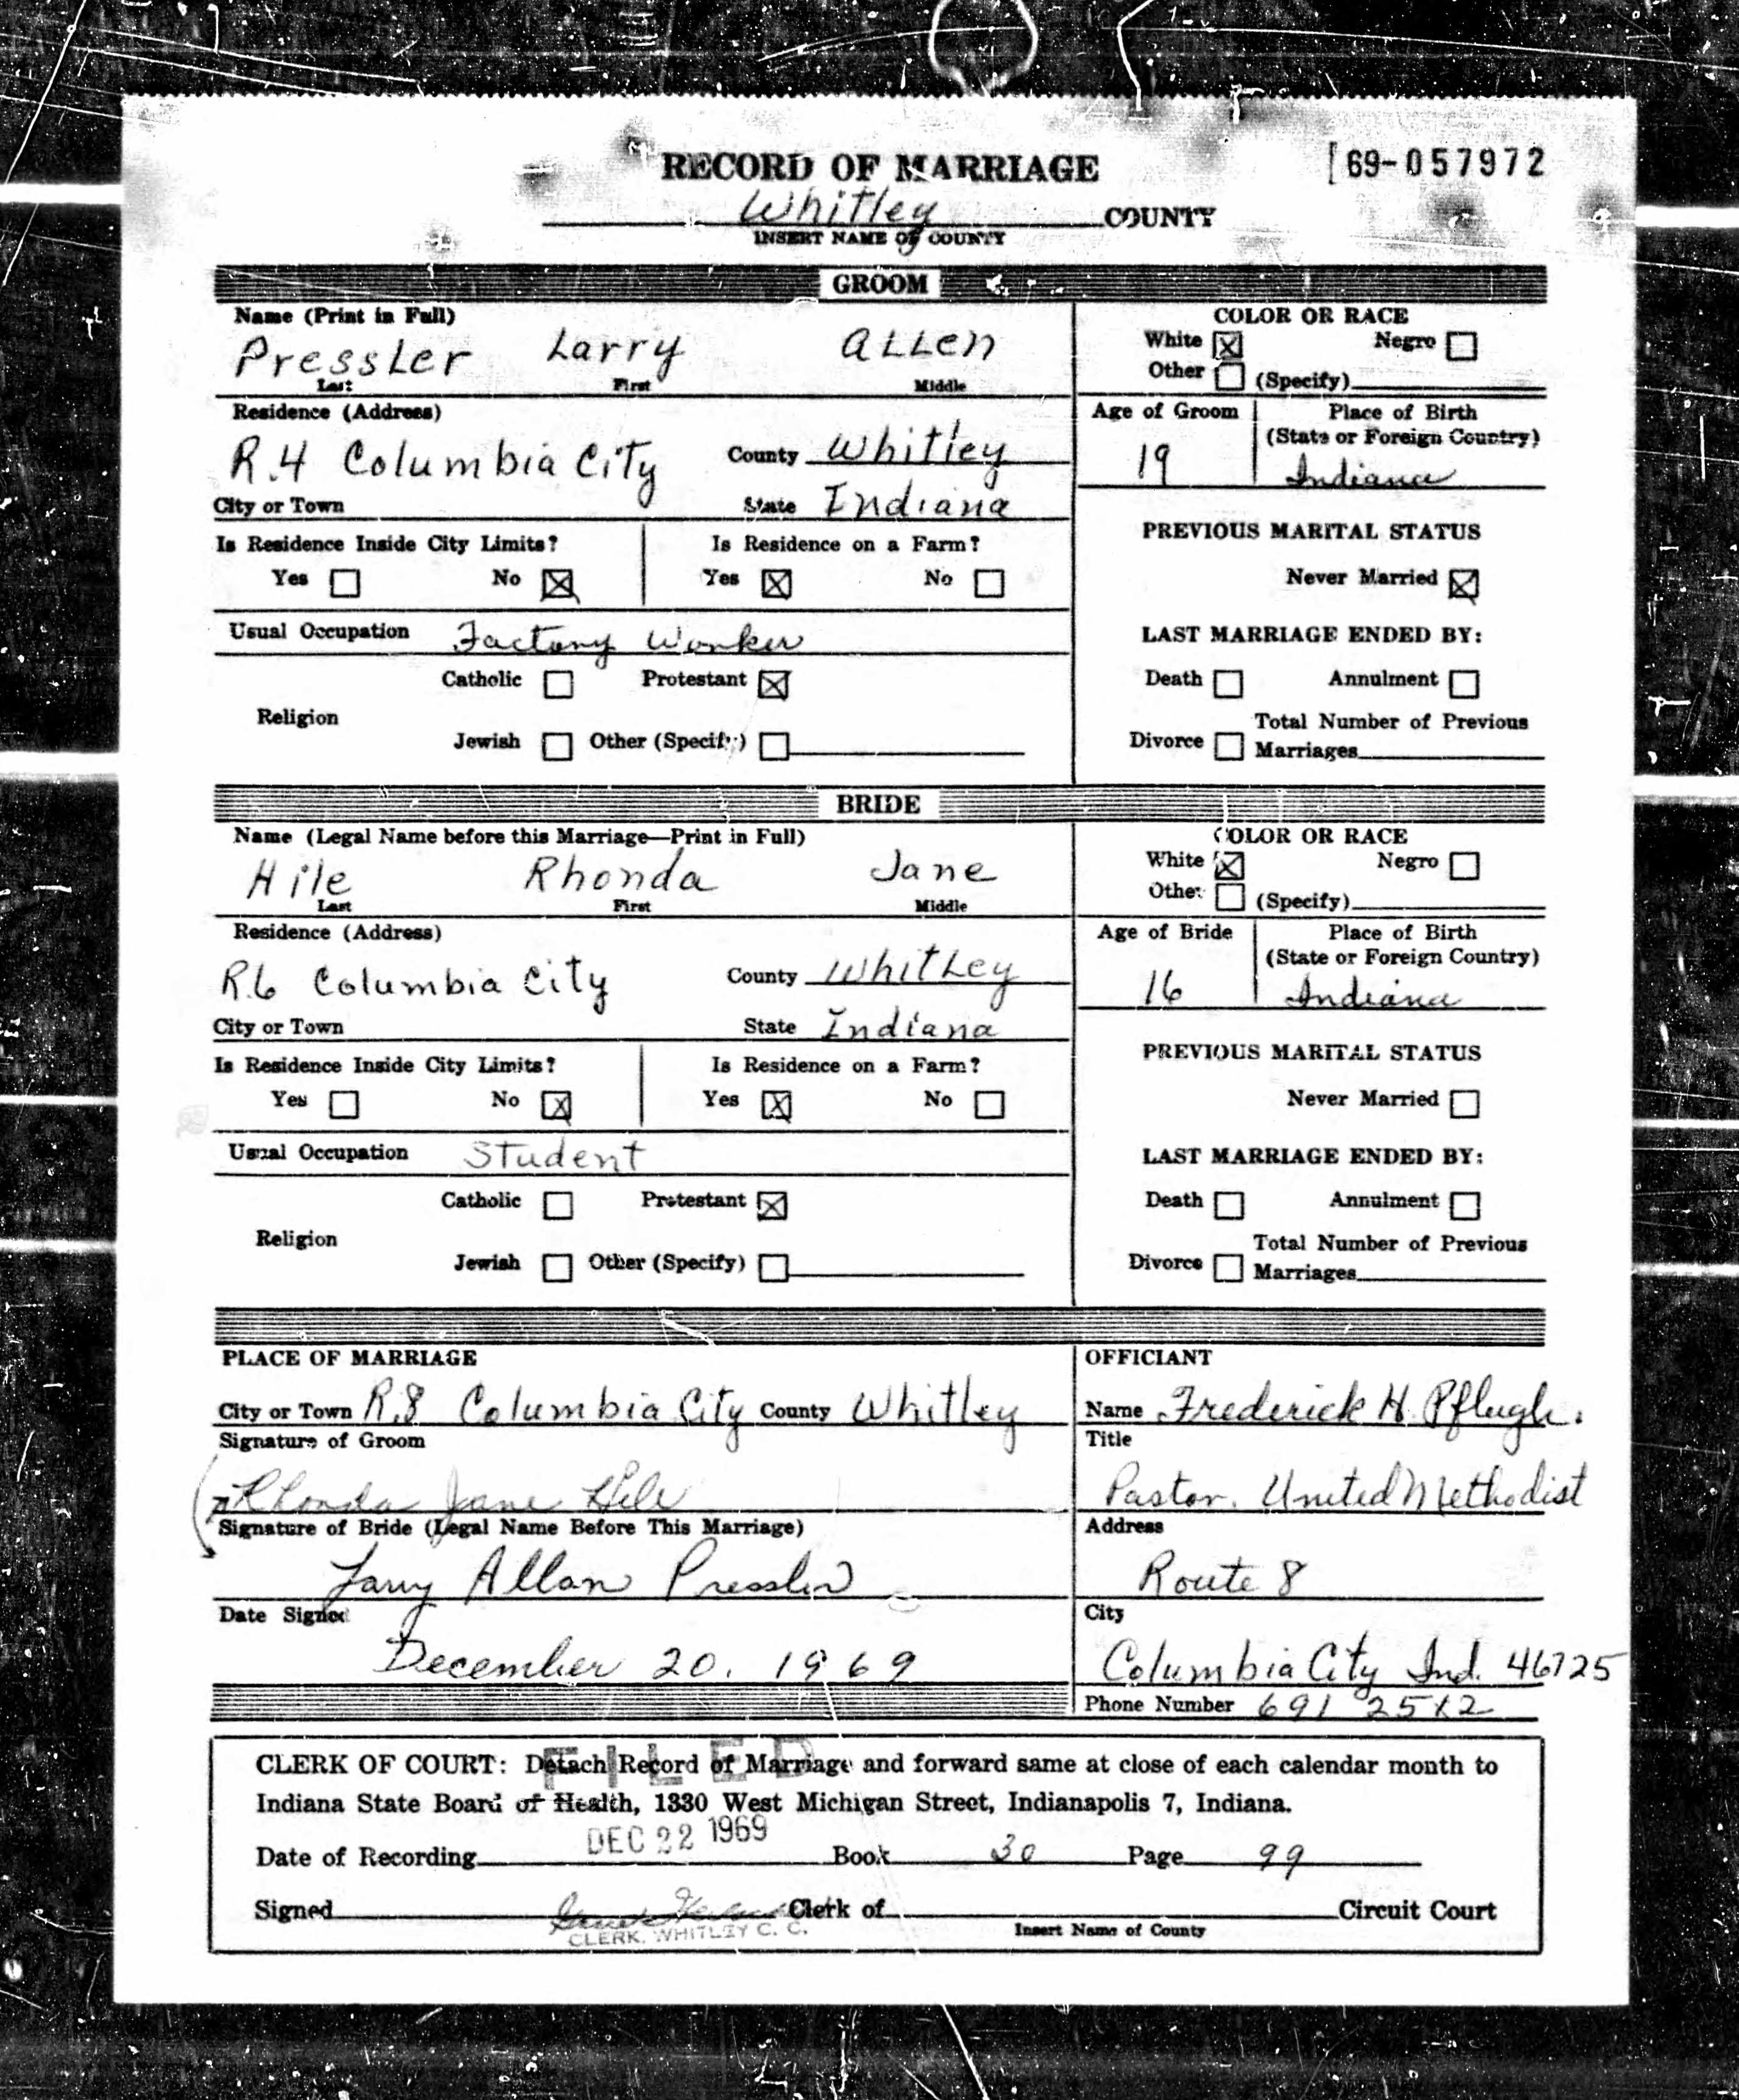 RECORD OF MARRIAGE
69-057972
Whitley COUNTY
INSERT NAME OF COUNTY
GROOM
Name (Print in Full)
Pressler Larry Allen
Last First Middle
COLOR OR RACE
White [X] Negro [ ]
Other [ ] (Specify)
Residence (Address)
R.4 Columbia City County Whitley
City or Town State Indiana
Age of Groom
19
Place of Birth
(State or Foreign Country)
Indiana
Is Residence Inside City Limits? Is Residence on a Farm?
Yes [ ] No [X] Yes [X] No [ ]
PREVIOUS MARITAL STATUS
Never Married [X]
Usual Occupation Factory Worker
LAST MARRIAGE ENDED BY:
Catholic [ ] Protestant [X]
Religion
Jewish [ ] Other (Specify) [ ]
Death [ ] Annulment [ ]
Divorce [ ] Total Number of Previous
Marriages
BRIDE
Name (Legal Name before this Marriage—Print in Full)
Hile Rhonda Jane
Last First Middle
COLOR OR RACE
White [X] Negro [ ]
Other [ ] (Specify)
Residence (Address)
R.6 Columbia City County Whitley
City or Town State Indiana
Age of Bride
16
Place of Birth
(State or Foreign Country)
Indiana
Is Residence Inside City Limits? Is Residence on a Farm?
Yes [ ] No [X] Yes [X] No [ ]
PREVIOUS MARITAL STATUS
Never Married [ ]
Usual Occupation Student
LAST MARRIAGE ENDED BY:
Catholic [ ] Protestant [X]
Religion
Jewish [ ] Other (Specify) [ ]
Death [ ] Annulment [ ]
Divorce [ ] Total Number of Previous
Marriages
PLACE OF MARRIAGE
City or Town R.8 Columbia City County Whitley
Signature of Groom
Rhonda Jane Hile
Signature of Bride (Legal Name Before This Marriage)
Larry Allan Pressler
Date Signed
December 20, 1969
OFFICIANT
Name Frederick H. Pflugh.
Title
Pastor, United Methodist
Address
Route 8
City
Columbia City Ind. 46725
Phone Number 691 2512
CLERK OF COURT: Detach Record of Marriage and forward same at close of each calendar month to
Indiana State Board of Health, 1330 West Michigan Street, Indianapolis 7, Indiana.
FILED
Date of Recording DEC 22 1969 Book 30 Page 99
Signed Clerk of Circuit Court
CLERK, WHITLEY C. C. Insert Name of County